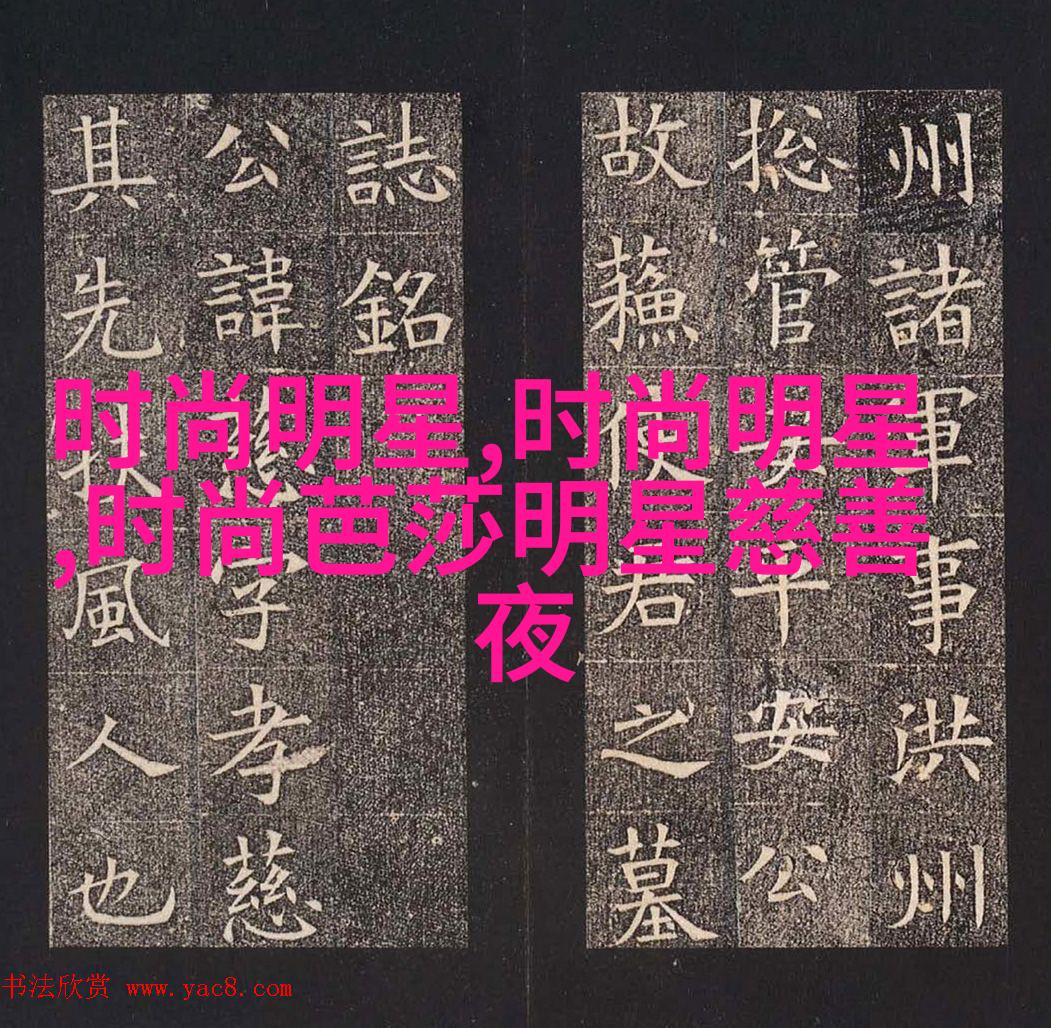 州諸軍事洪州
揔管安平安公
故蘓使君之墓
誌銘
公諱慈字孝慈
其先扶風人也
时尚明星,时尚明星
,时尚芭莎明星慈善
夜
书法欣赏 www.yac8.com